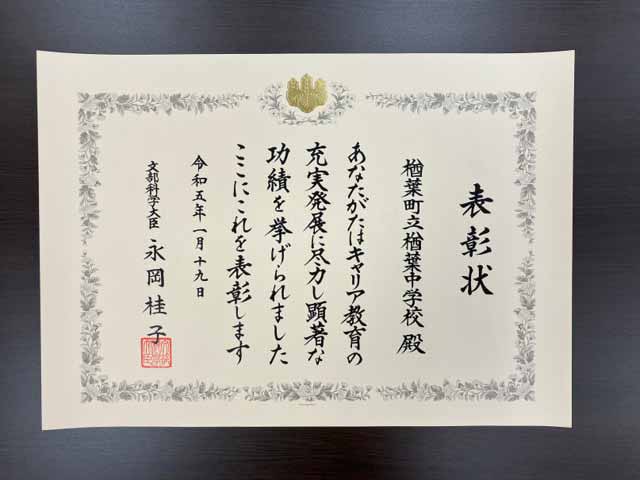 表彰状
楢葉町立楢葉中学校 殿
あなたがたはキャリア教育の
充実発展に尽力し顕著な
功績を挙げられました
ここにこれを表彰します
令和五年一月十九日
文部科学大臣 永岡桂子